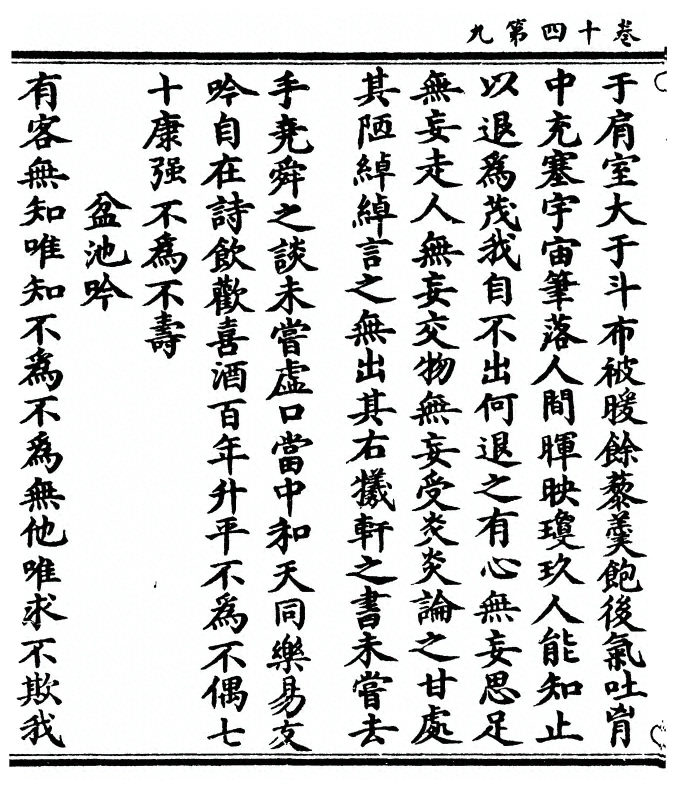 卷十四第九
于肩室大于斗布被暖餘藜羹飽後氣吐胷
中充塞宇宙筆落人間暉映瓊玖人能知止
以退為茂我自不出何退之有心無妄思足
無妄走人無妄交物無妄受炎炎論之甘處
其陋綽綽言之無出其右犧軒之書未嘗去
手堯舜之談未嘗虛口當中和天同樂易友
吟自在詩飲歡喜酒百年升平不為不偶七
十康强不為不壽
盆池吟
有客無知唯知不為不為無他唯求不欺我